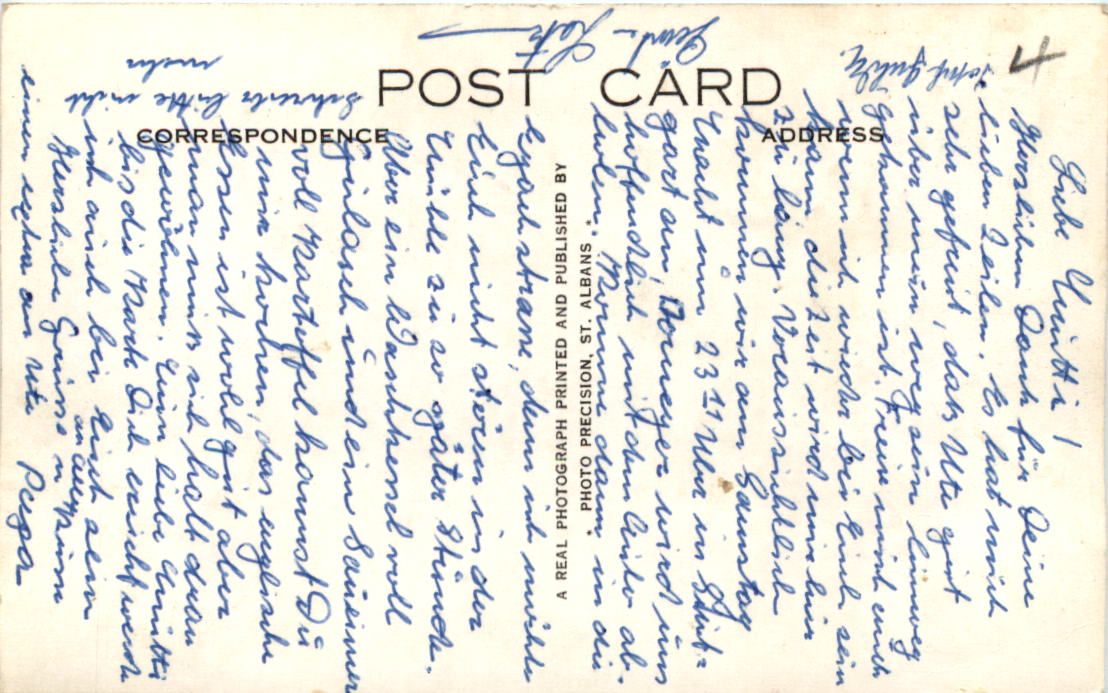 POST CARD
CORRESPONDENCE
ADDRESS
A REAL PHOTOGRAPH PRINTED AND PUBLISHED BY
* PHOTO PRECISION, ST. ALBANS *
4
Liebe Mutti!
Herzlichen Dank für Deine
lieben Zeilen. Es hat mich
sehr gefreut, daß Ute gut
über ihren hinweg
gekommen ist. Freue mich auch
wenn ich wieder bei Euch sein
kann, die Zeit wird mir hier
zu lang. Voraussichtlich
kommen wir am Samstag
Nacht um 23 11 Uhr in Stutt=
gart an, Domeyer wird uns
hoffentlich mit dem Auto ab=
holen. Komme dann in die
denn ich möchte
Euch nicht stören in der
Mühle zu so später Stunde.
Aber ein Waschkessel voll
Gulasch und ein Saueimer
voll Kartoffel kannst Du
mir kochen, das englische
Essen ist wohl gut aber
man muss sich halt daran
gewöhnen. Nun liebe Mutti
bis die Karte Dich erreicht werde
ich auch bei Euch sein
Herzliche Grüsse u. Küsse
an alle
einen extra an Ute Papa
bitte nicht
mehr